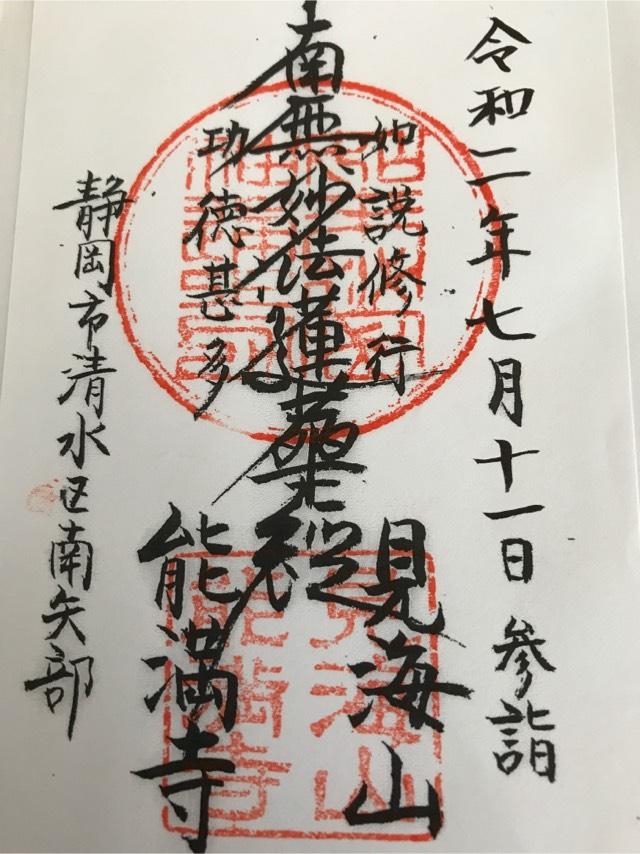 令和二年七月十一日 参詣
如説修行
見海山
南無妙法蓮華経
功徳甚多
能満寺
静岡市清水区南矢部